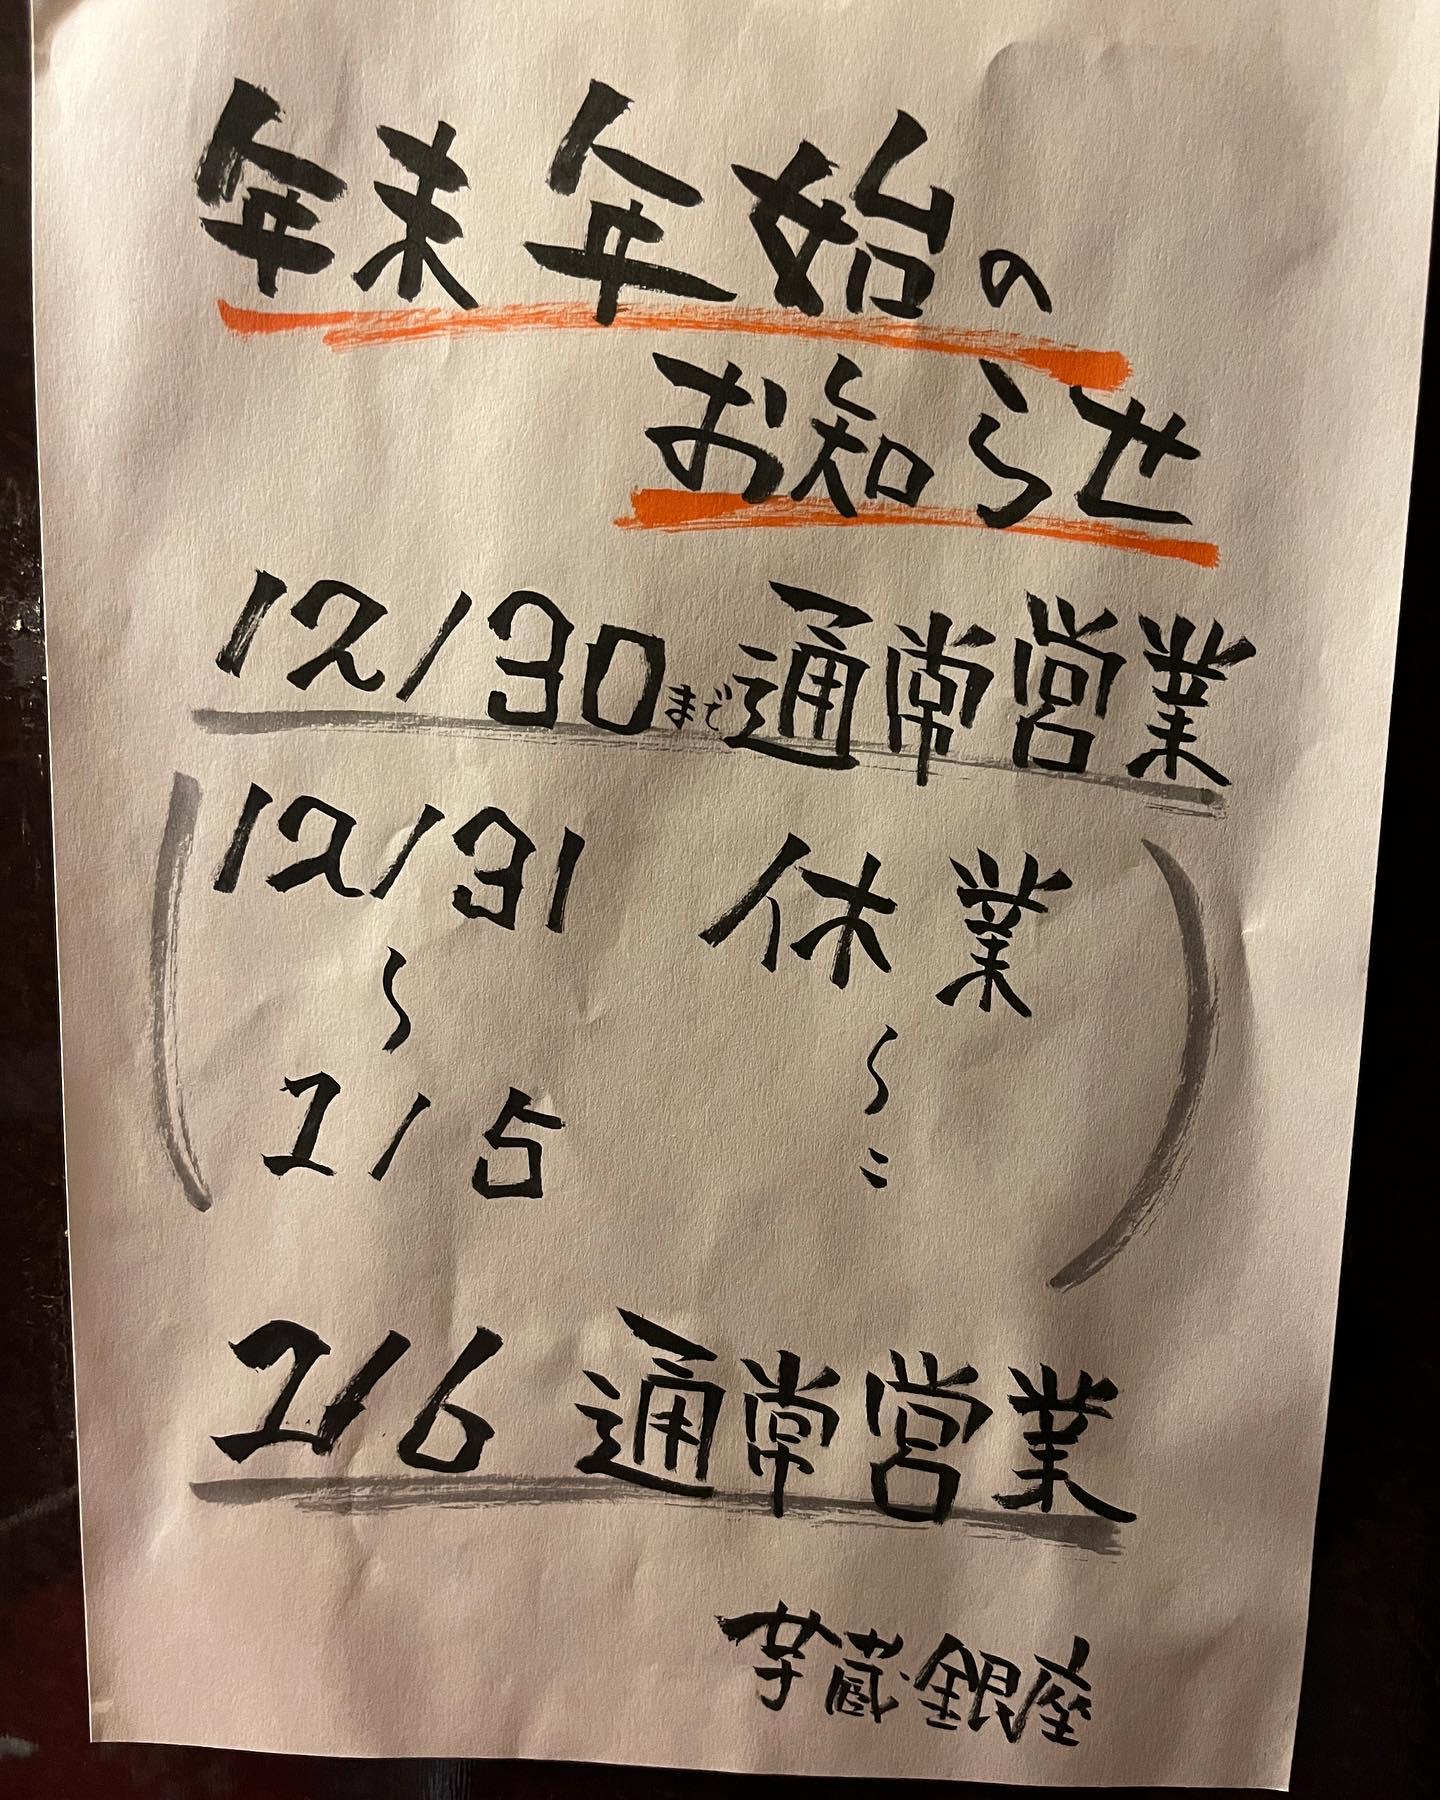 年末年始の
お知らせ
12/30まで通常営業
12/31 休業
〜 〜
1/5 ﾆ
1/6 通常営業
芋蔵 銀座